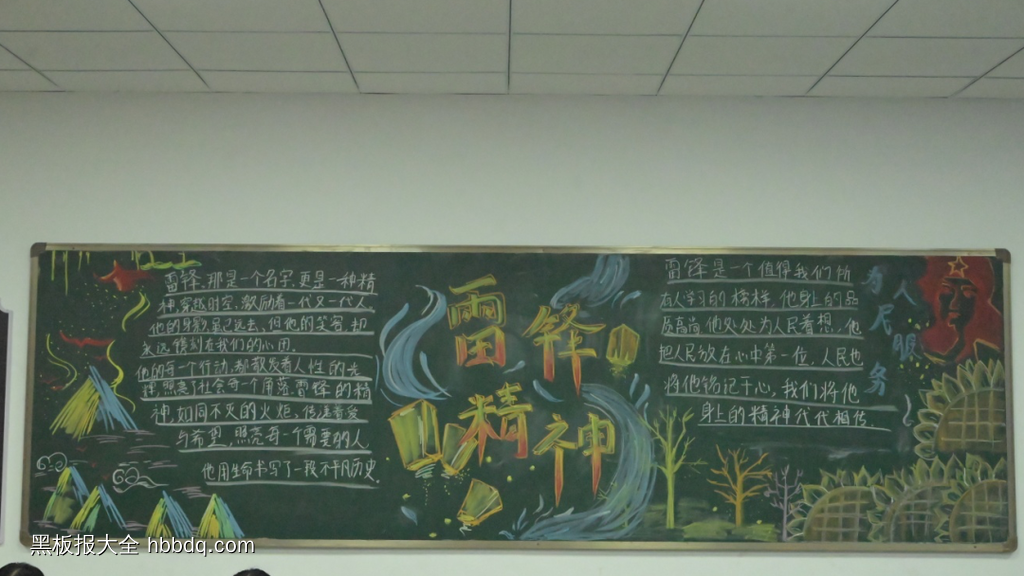 雷锋,那是一个名字,更是一种精
神,穿越时空,激励着一代又一代人
他的身影虽已远去、但他的笑容却
永远镌刻在我们的心田。
他的每一个行动,都散发着人性的光
辉,照亮了社会每一个角落 雷锋的精
神,如同不灭的火炬,传递着爱
与希望,照亮每一个需要的人
他用生命书写了一段不凡历史.
雷锋
精神
雷锋是一个值得我们所
有人学习的榜样,他身上的品
质高尚 他处处为人民着想,他
把人民放在心中第一位,人民也
将他铭记于心,我们将他
身上的精神代代相传.
为人民服务
黑板报大全 hbbdq.com